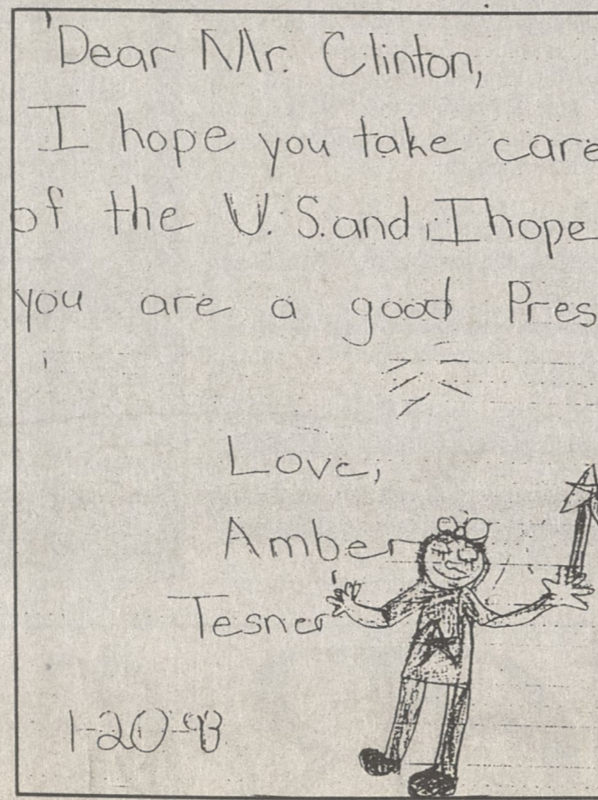 Dear Mr. Clinton,
I hope you take care
of the U.S. and I hope
you are a good Pres
Love,
Amber
Tesner
1-20-93